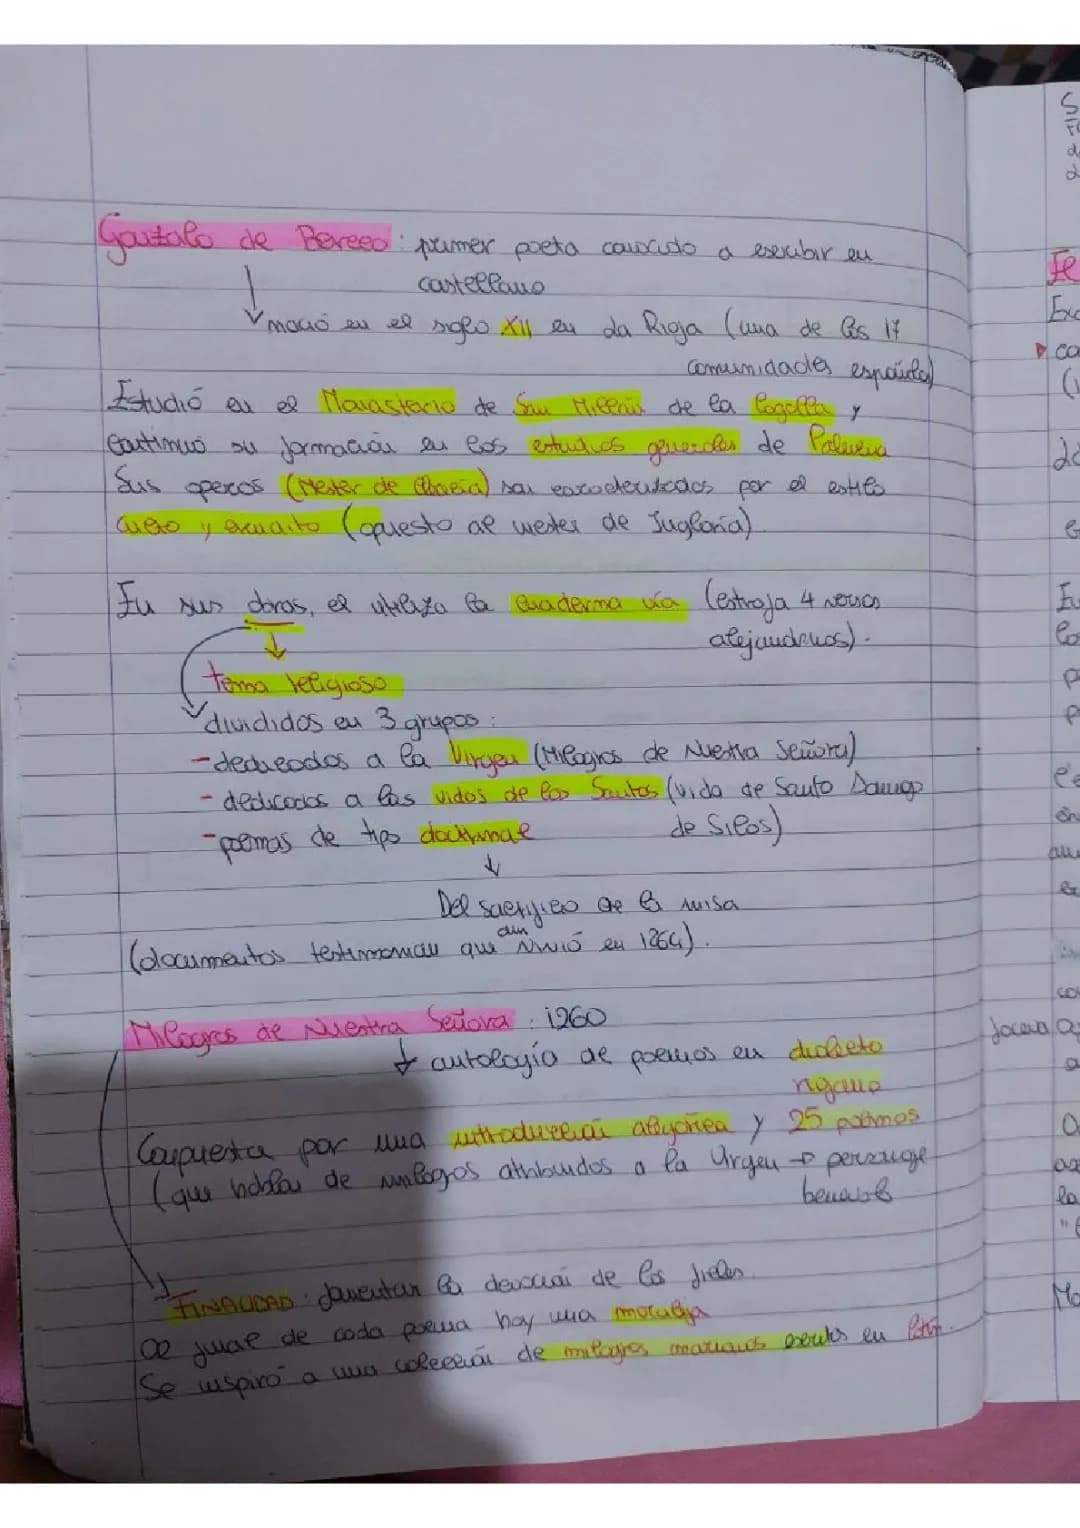 Gonzalo de Berceo: primer poeta conocido a escribir en
castellano
nació en el siglo XII en La Rioja (una de los 17
comunidades española)
Estudió en el Monasterio de San Millán de la Cogolla y
continuó su formación en los estudios generales de Palencia
Sus operas (Mester de Clerecía) son caracterizadas por el estilo
culto y erudito (opuesto al mester de Juglaría).
En sus obras, el utiliza la cuaderna vía (estrofa 4 versos
alejandrinos).
tema religioso
divididos en 3 grupos:
- dedicados a la Virgen (Milagros de Nuestra Señora)
- dedicados a las vidas de los Santos (vida de Santo Domingo
de Silos)
- poemas de tipo doctrinal
Del sacrificio de la misa
aun
(documentos testimonian que vivió en 1264).
Milagros de Nuestra Señora: 1260
antología de poemas en dialecto
riojano
Compuesta por una introducción alegórica y 25 poemas
(que hablan de milagros atribuidos a la Virgen → personaje
benevolo
FINALIDAD: fomentar la devoción de los fieles.
Al final de cada poema hay una moraleja
Se inspiró a una colección de milagros marianos escritos en latín.
Jocosa